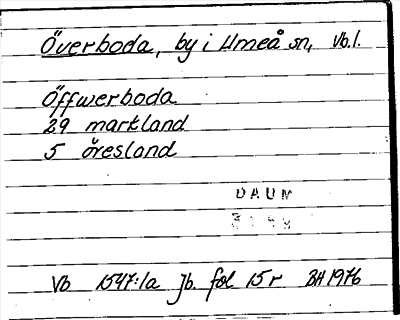 Överboda, by i Umeå sn, Vb.l.
Öffwerboda
29 markland
5 öresland
DAUM
Vb 1547:1a Jb. fol 15r BH 1976